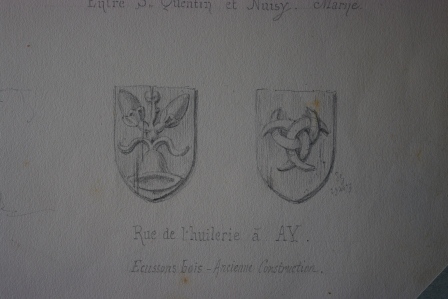 Entre St Quentin et Nuisy. Marne.
Rue de l'huilerie à AY.
Ecussons bois - Ancienne Construction.